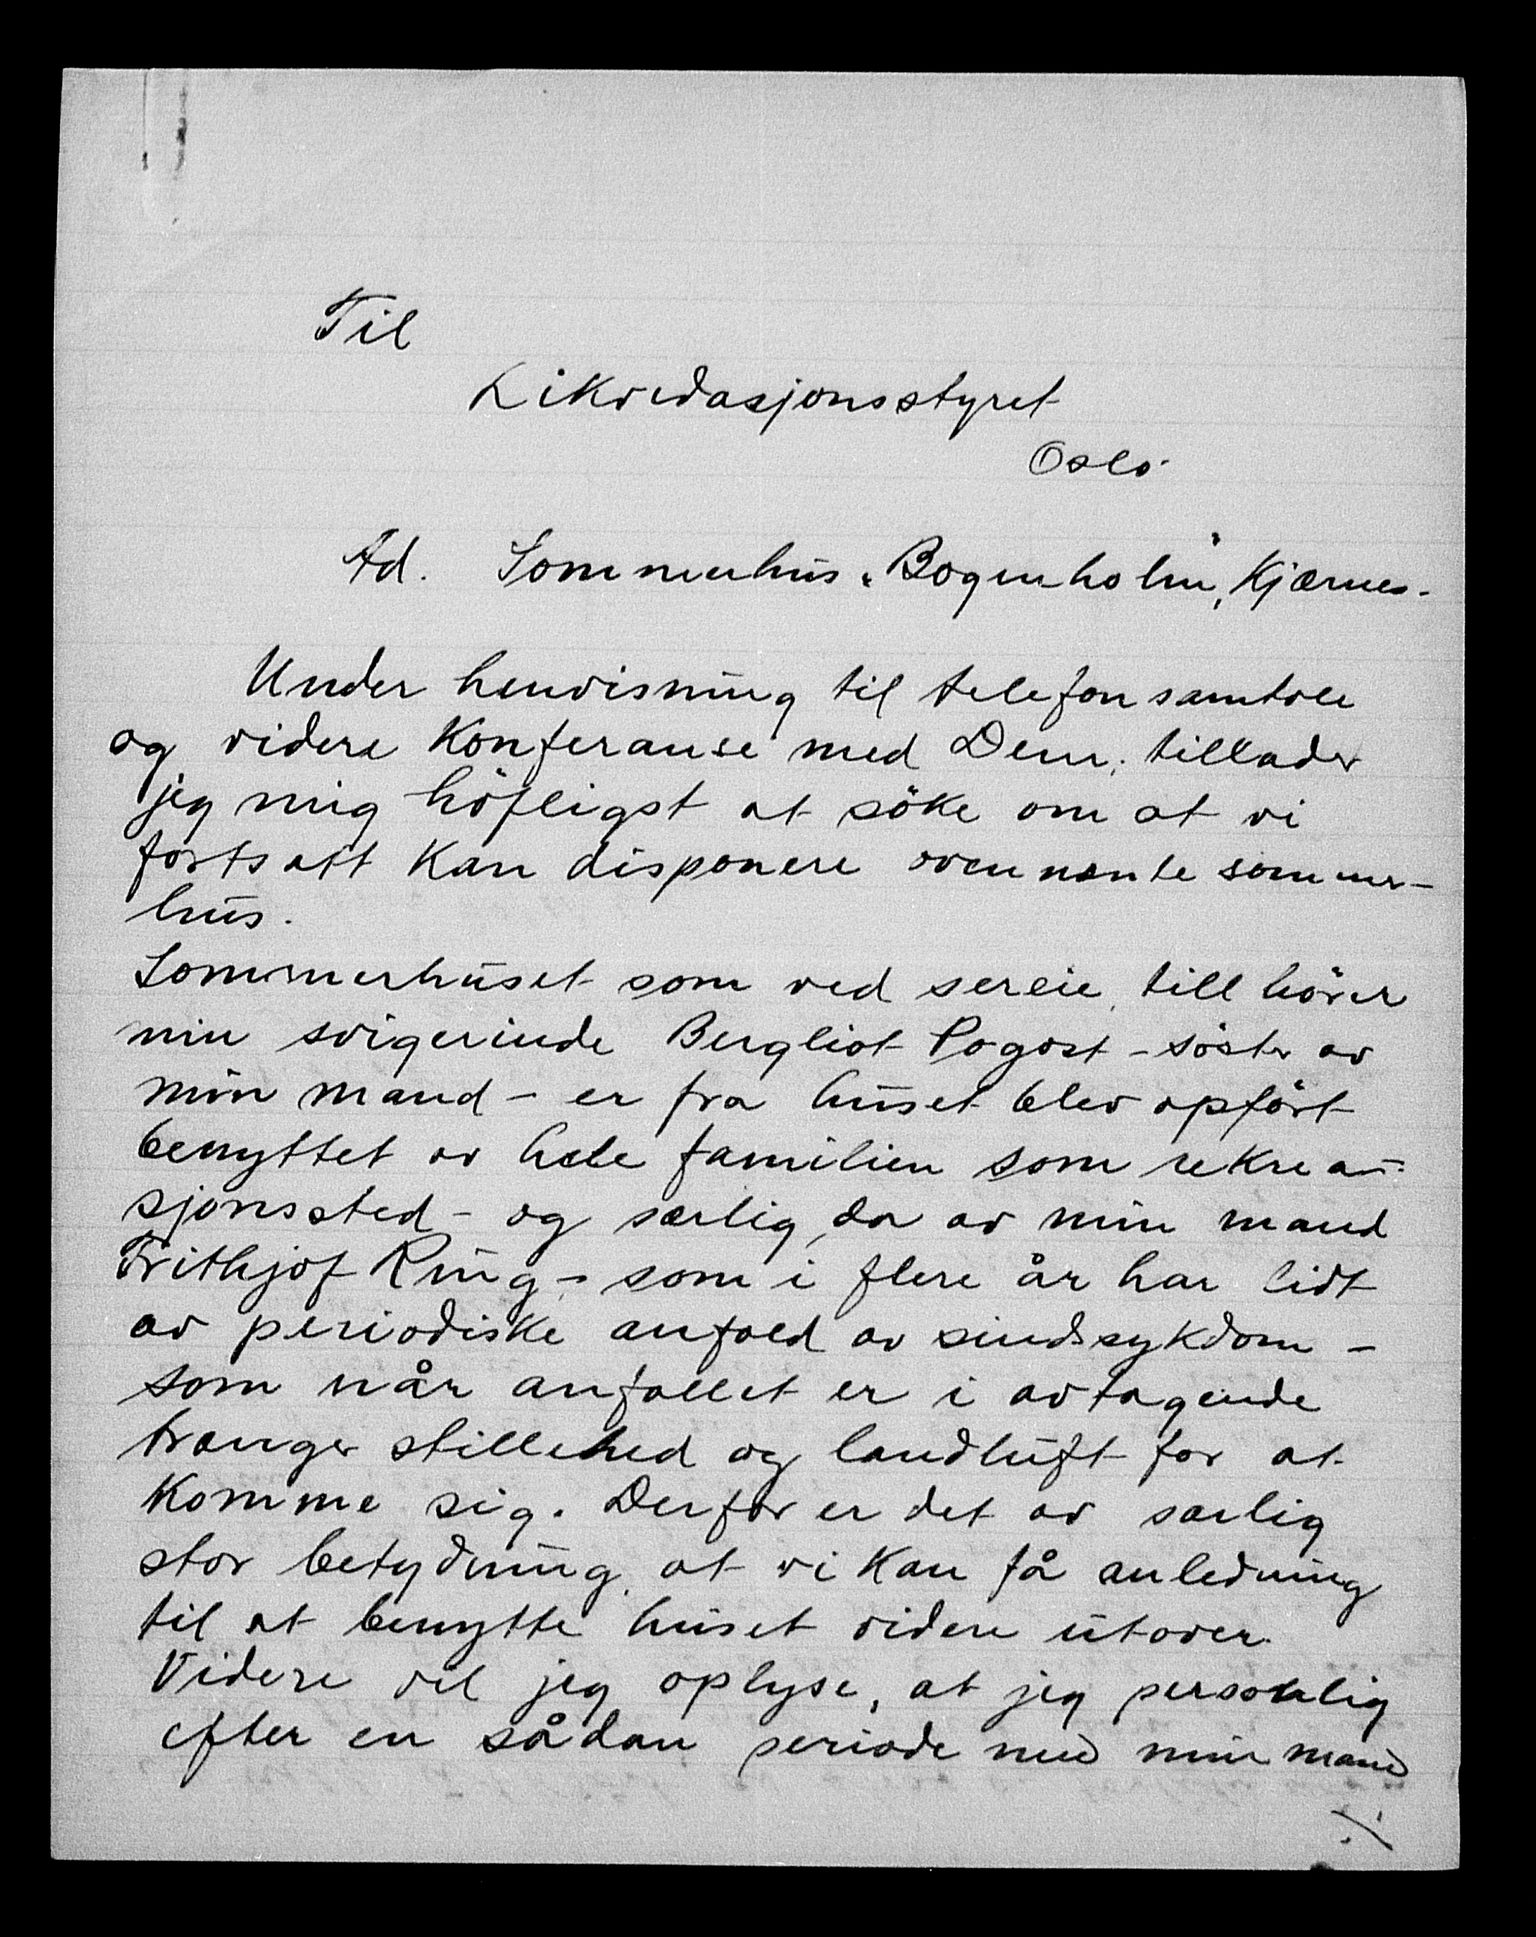 Til
Likvidasjonsstyret
Oslo.
Ad. Sommerhus „Bogenholm", Kjærnes.
Under henvisning til telefonsamtale
og videre Konferanse med Dem, tillader
jeg mig höfligst at söke om at vi
fortsatt Kan disponere ovennevnte sommer-
hus.
Sommerhuset som ved sereie tillhörer
min svigerinde Bergliot Pogost - söster av
min mand - er fra huset blev opfört
benyttet av hele familien som rekrea-
sjonssted - og særlig da av min mand
Frithjof Ring - som i flere år har lidt
av periodiske anfald av sindssykdom -
som når anfallet er i avtagende
tranger stillehed og landluft for at
Komme sig. Derfor er det av særlig
stor betydning, at vi Kan få anledning
til at benytte huset videre utover.
Videre vil jeg oplyse, at jeg personlig
efter en sådan periode med min mand
./.